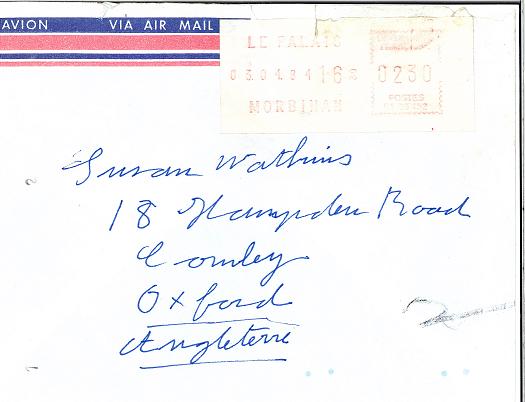 AVION VIA AIR MAIL
LE PALAIS
03.04.94 16 0230
POSTES
MORBIHAN
Susan Watkins
18 Hampden Road
Cowley
Oxford
Angleterre